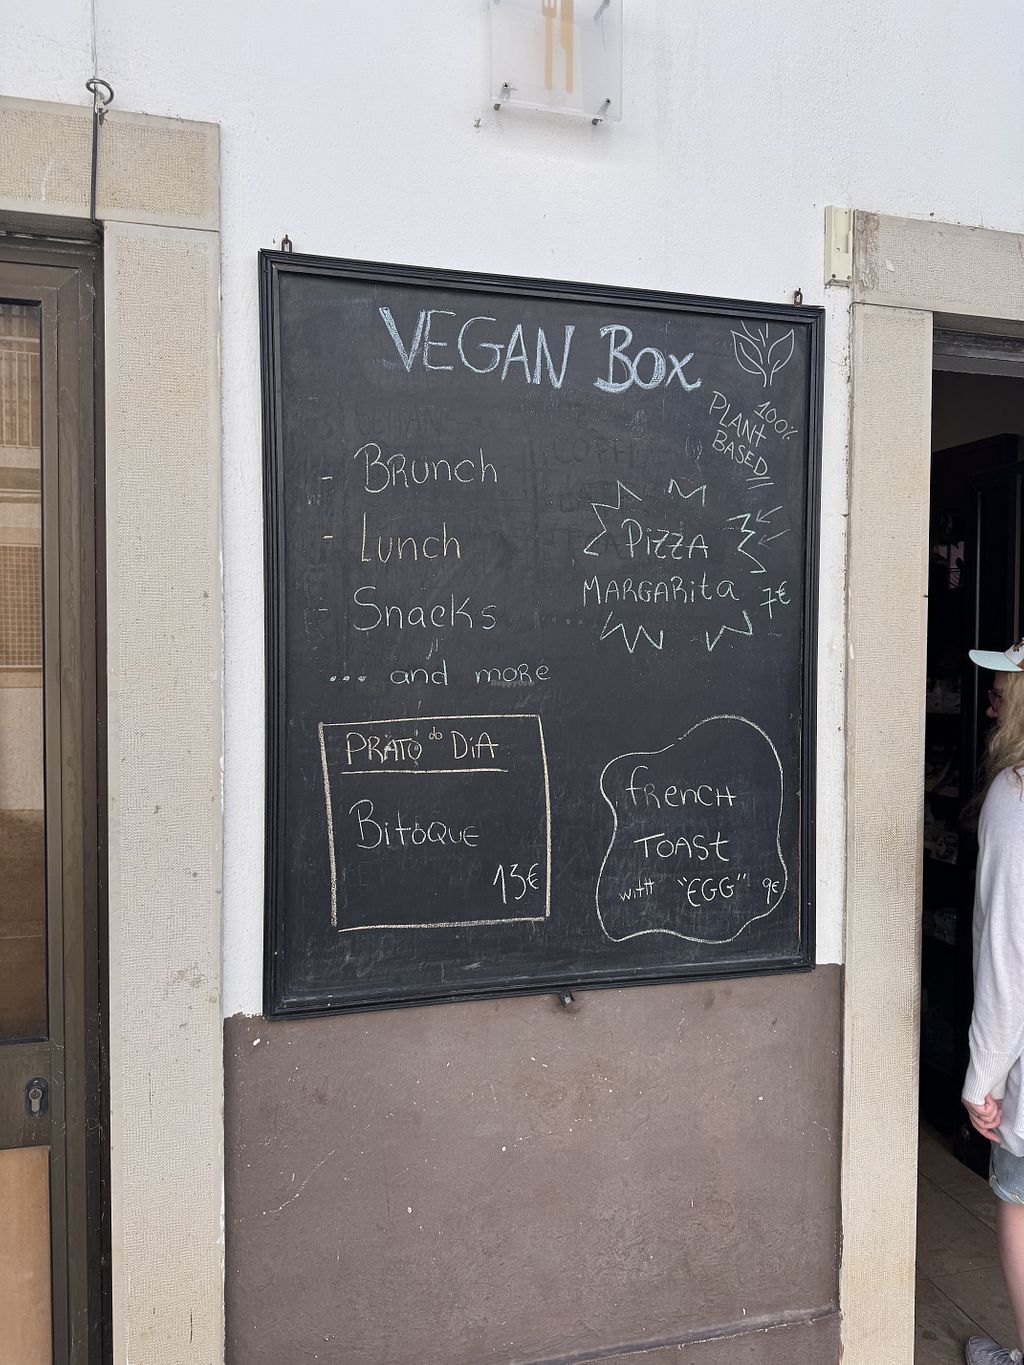 VEGAN Box
100%
PLANT
BASED
- BRunch
- Lunch
- Snacks
... and moRe
PiZZA
MARGARita 7€
PRATO do DiA
BitoQUE
13€
fRencH
TOASt
witH "EGG" 9€
HappyCow